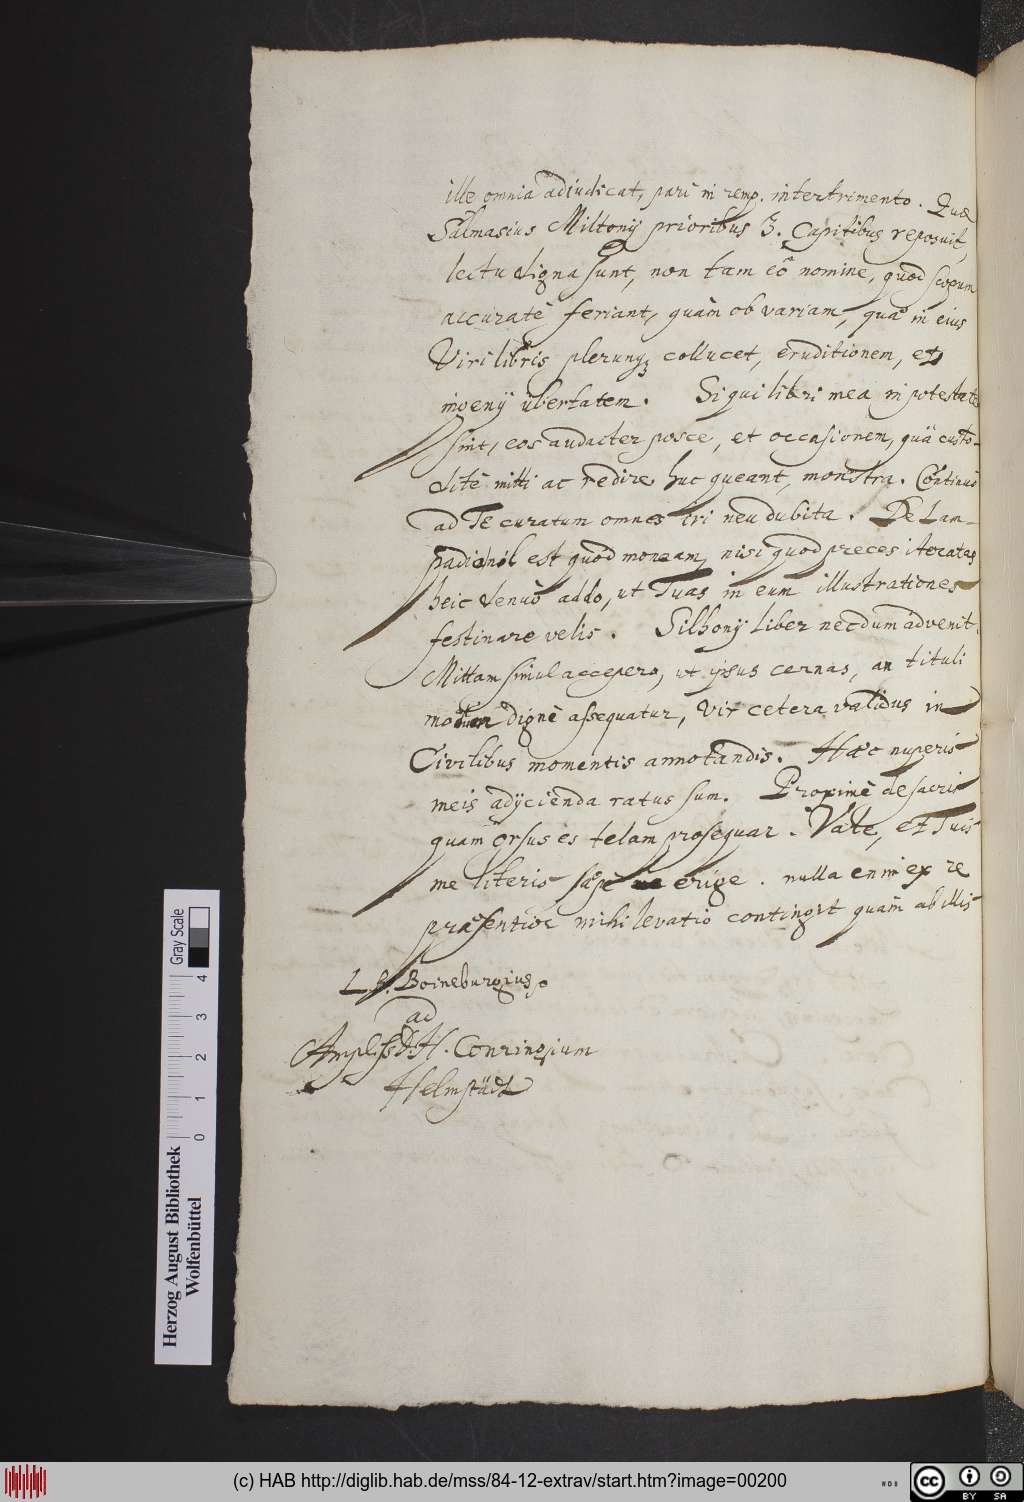 ille omnia adiudicat, pari in remp. intertrimento. Quæ
Salmasius Miltonij prioribus 3. Capitibus reposuit,
lectu digna sunt, non tam eo nomine, quod scopum
accuratè feriant, quàm ob variam, quæ in eius
Viri libris plerunq; collucet, eruditionem, et
ingenij ubertatem. Si qui libri mea in potestate
sint, eos audacter posce, et occasionem, quâ custo-
ditè mitti ac redire huc queant, monstra. Continuò
ad Te curatum omnes iri neu dubita. De Lam-
padio nil est quod moneam, nisi quod preces iteratas
heic denuò addo, ut Tuas in eum illustrationes
festinare velis. Silhonij Liber necdum advenit.
Mittam simul accepero, ut ipsus cernas, an tituli
modum dignè assequatur, Vir cetera validus in
Civilibus momentis annotandis. Hæc nuperis
meis adijcienda ratus sum. Proximè de sacris
quam orsus es telam prosequar. Vale, et Tuis
me literis sæpe erige. nulla enim ex re
præsentior mihi levatio contingit quàm ab illis
L. B. Boineburgius.
ad
Ampliss. D. H. Conringium
Helmstädt
Herzog August Bibliothek
Wolfenbüttel
Gray Scale
0 1 2 3 4
(c) HAB http://diglib.hab.de/mss/84-12-extrav/start.htm?image=00200
cc BY SA